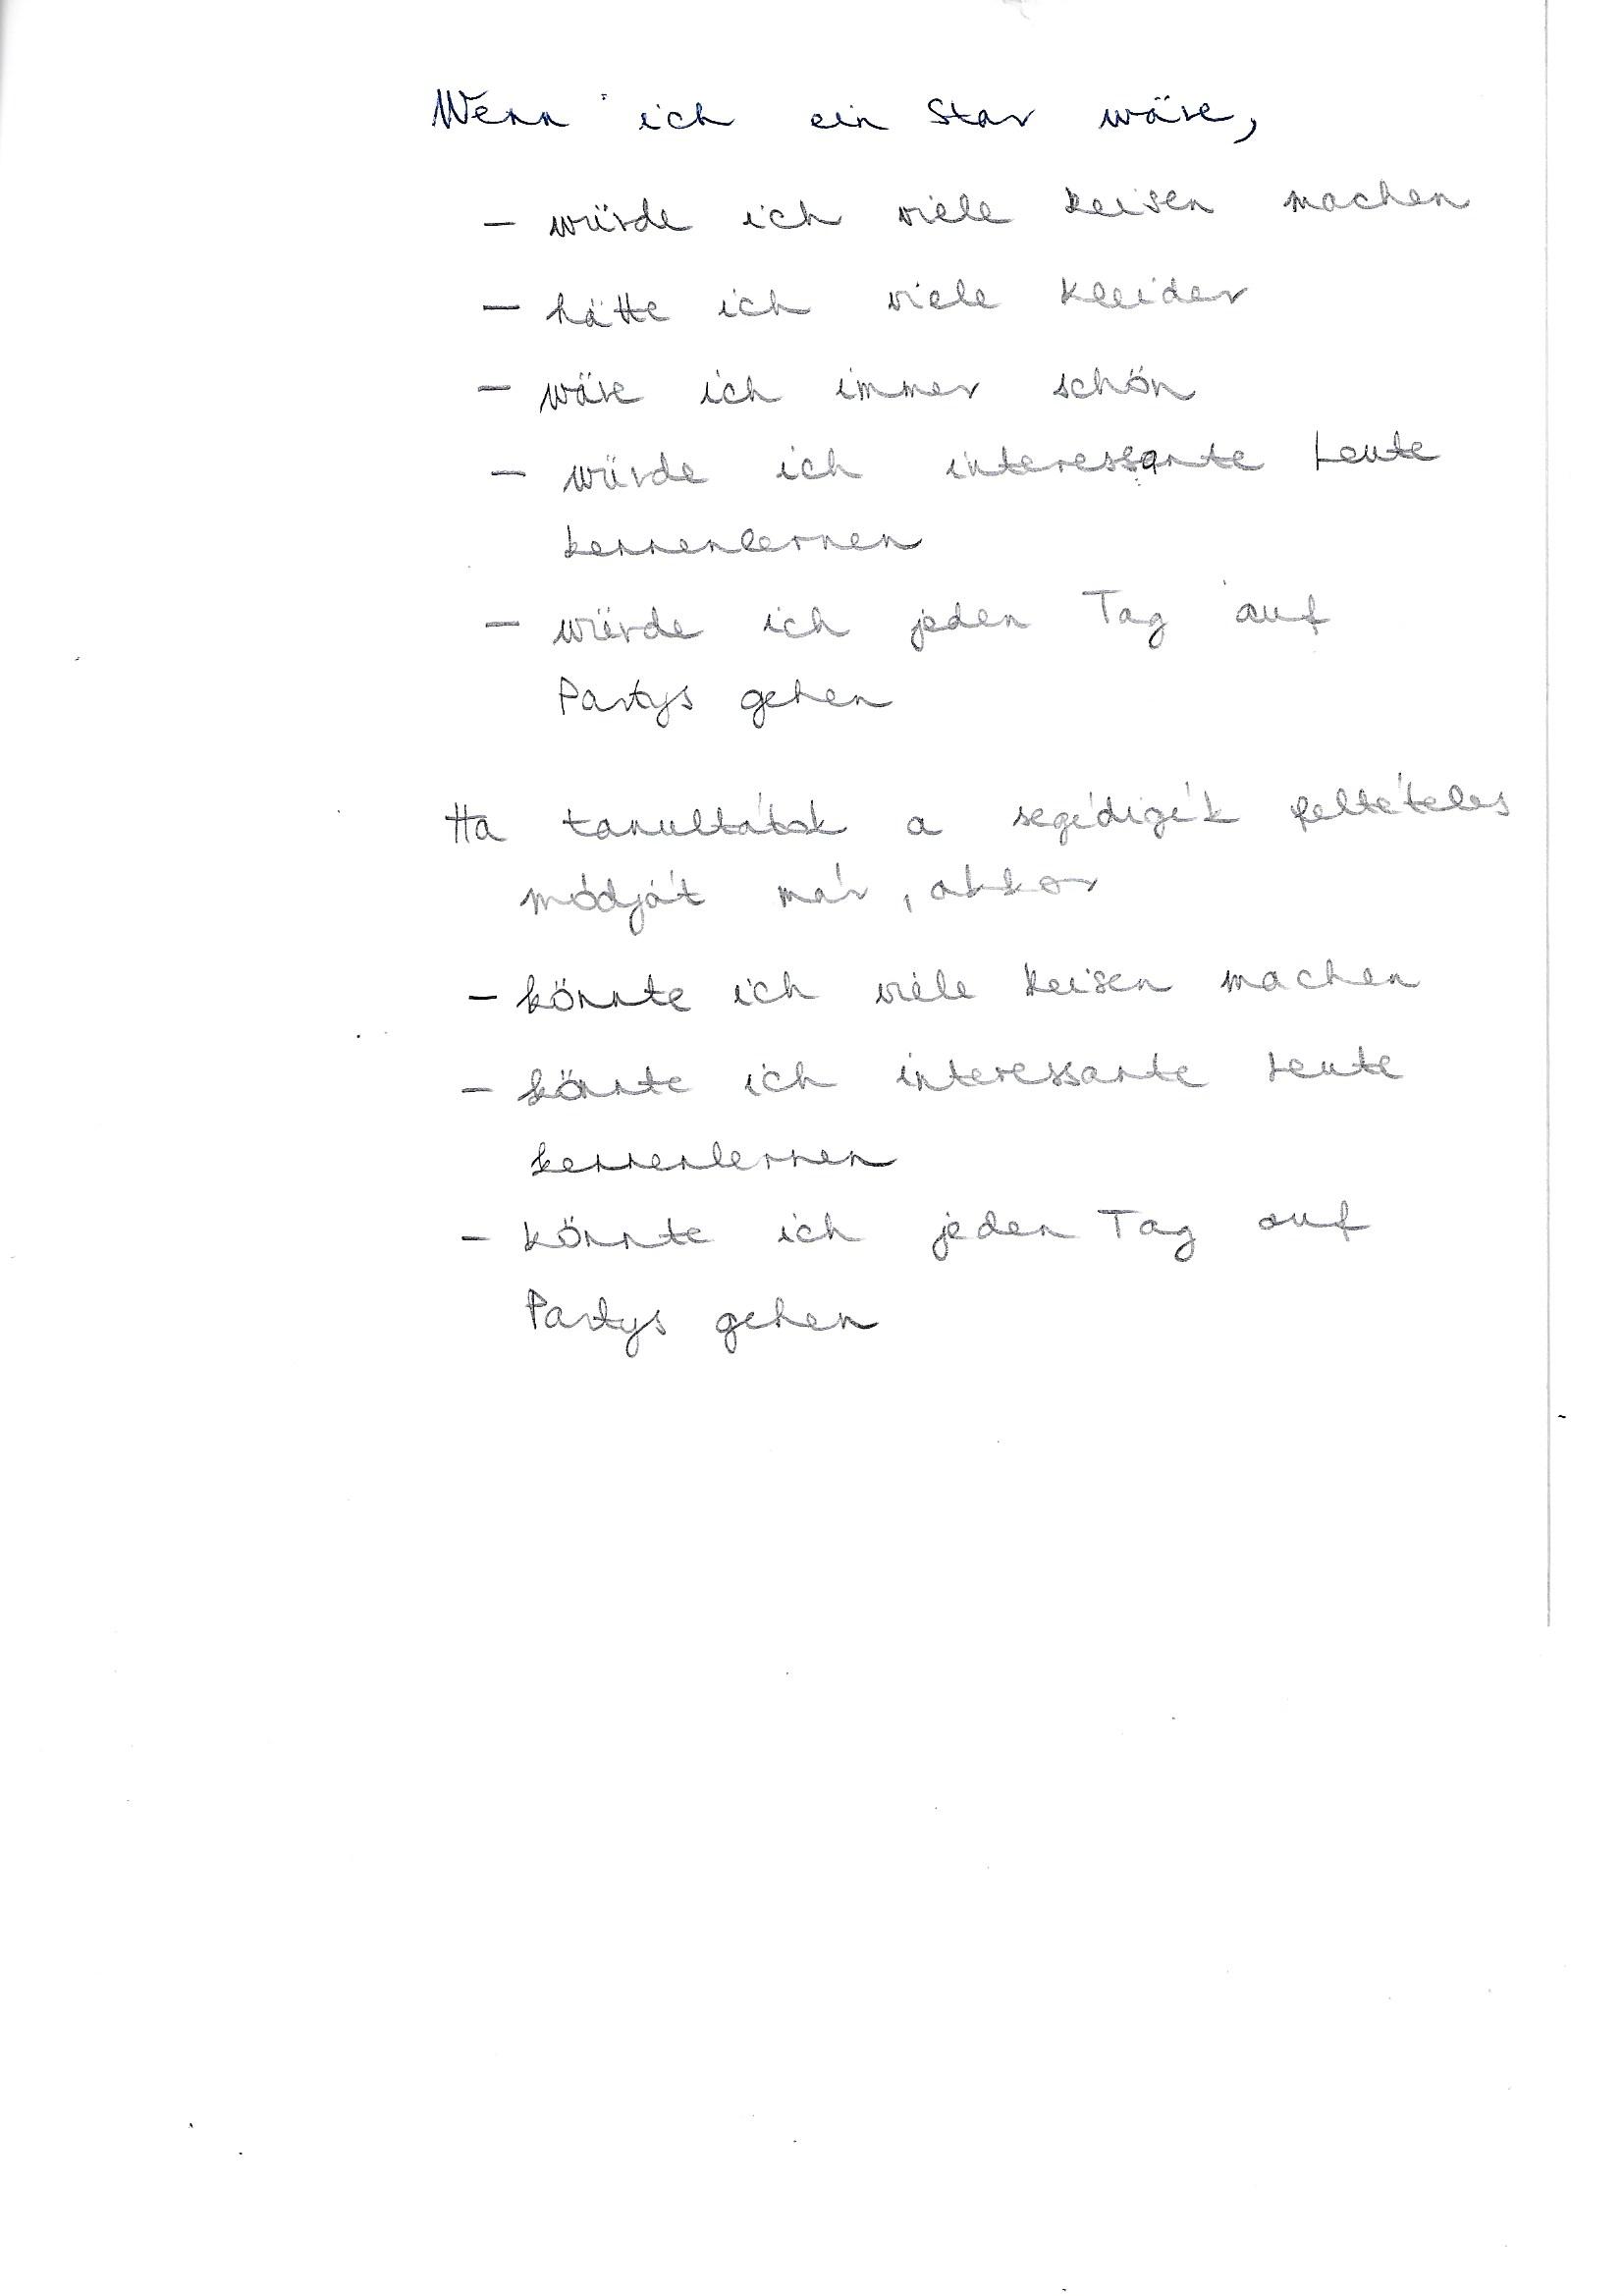 Wenn ich ein Star wäre,
- würde ich viele Reisen machen
- hätte ich viele Kleider
- wäre ich immer schön
- würde ich interessante Leute
kennenlernen
- würde ich jeden Tag auf
Partys gehen
Ha tanultátok a segédigék feltételes
módját már, akkor
- könnte ich viele Reisen machen
- könnte ich interessante Leute
kennenlernen
- könnte ich jeden Tag auf
Partys gehen